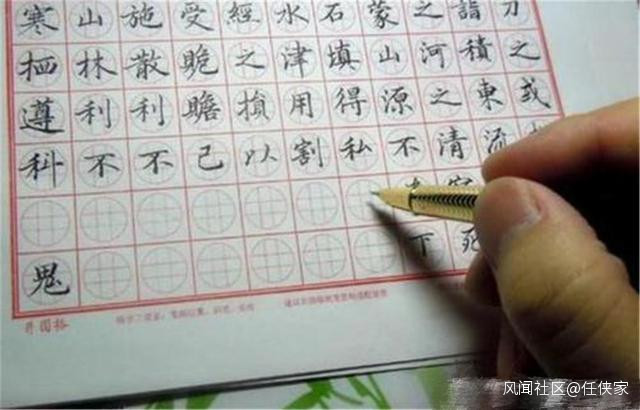 寒山施受經水石蒙之詣刀
栖林散晚之津填山河積之
遵利利瞻損用得源之東或
科不不己以割私不清流
鬼 下死
井圆格
风闻社区@任侠家